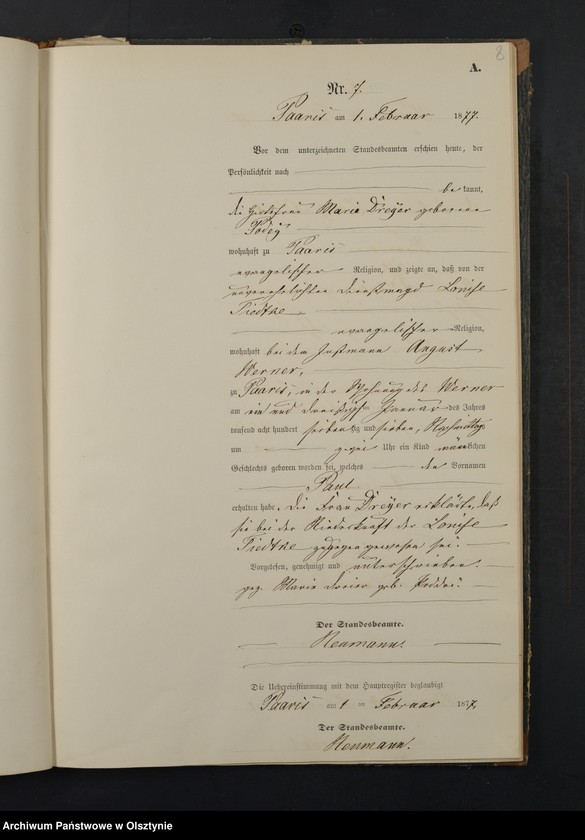 8
A.
Nr. 7.
Paaris am 1. Februar 1877.
Vor dem unterzeichneten Standesbeamten erschien heute, der
Persönlichkeit nach
bekannt,
die Maria Dreyer geborene
wohnhaft zu Paaris
evangelischer Religion, und zeigte an, daß von der
unverehelichten Dienstmagd Louise
Tiedtke
evangelischer Religion,
wohnhaft bei dem Instmann August
Werner,
zu Paaris, in der Wohnung des Werner
am ein und dreißigsten Januar des Jahres
tausend acht hundert siebenzig und sieben, Nachmittags
um Uhr ein Kind männlichen
Geschlechts geboren worden sei, welches den Vornamen
Paul
erhalten habe. Die Frau Dreyer erklärte, daß
sie bei der Niederkunft der Louise
Tiedtke zugegen gewesen sei.
Vorgelesen, genehmigt und unterschrieben.
gez. Maria geb.
Der Standesbeamte.
Neumann.
Die Uebereinstimmung mit dem Hauptregister beglaubigt
Paaris am 1 ten Februar 1877
Der Standesbeamte.
Neumann.
Archiwum Państwowe w Olsztynie